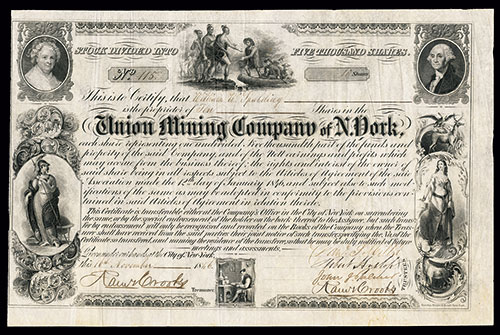 STOCK DIVIDED INTO FIVE THOUSAND SHARES.
No. 115 Shares
This is to Certify, that
is the proprietor of Ten Shares in the
Union Mining Company of N. York,
each share representing one undivided Five thousandth part of the funds and
property of the said Company, and of the Nett earnings and profits which
may accrue to the business thereof; the rights and title of the owner of
said share being in all respects subject to the Articles of Agreement of the said
Association made the 12th day of January 1846, and subject also to such mod-
ifications of the same as may be adopted in conformity to the provisions con-
tained in said Articles of Agreement in relation thereto.
This Certificate is transferable either at the Company's Office in the City of New York on surrendering
the same, or by the special endorsement of the holder on the back thereof to the Assignee, but such trans-
fer by endorsement will only be recognised and recorded on the Books of the Company when the Treas-
urer shall have received from the said parties their joint notice of such transfer, specifying the No. of the
Certificate so transferred, and naming the residence of the transferee, so that he may be duly notified of future
meetings and assessments.
the City of New York,
this November 1846
Treasurer
TRUSTEES